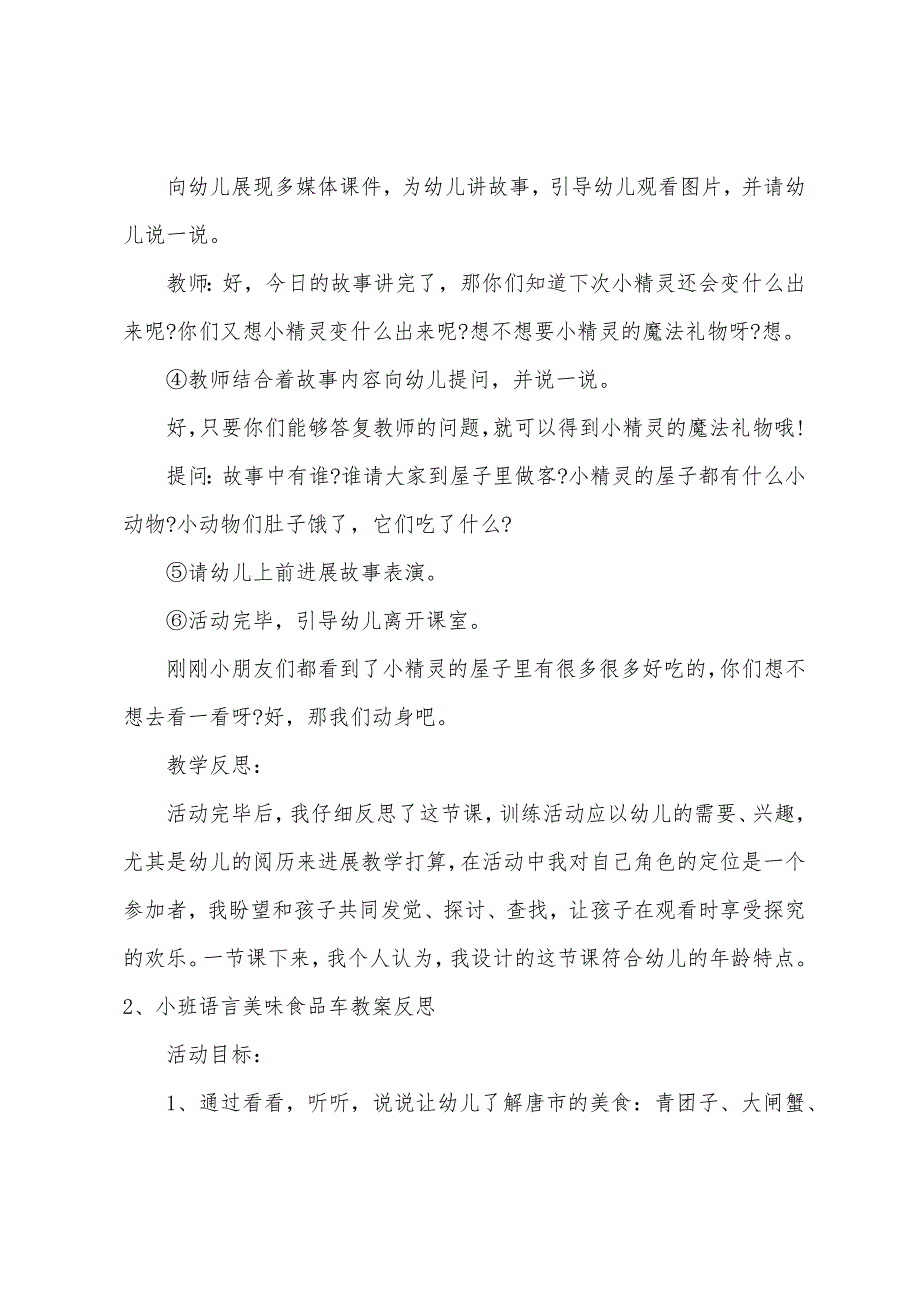 向幼儿展现多媒体课件，为幼儿讲故事，引导幼儿观看图片，并请幼
儿说一说。
教师：好，今日的故事讲完了，那你们知道下次小精灵还会变什么出
来呢?你们又想小精灵变什么出来呢?想不想要小精灵的魔法礼物呀?想。
④教师结合着故事内容向幼儿提问，并说一说。
好，只要你们能够答复教师的问题，就可以得到小精灵的魔法礼物哦!
提问：故事中有谁?谁请大家到屋子里做客?小精灵的屋子都有什么小
动物?小动物们肚子饿了，它们吃了什么?
⑤请幼儿上前进展故事表演。
⑥活动完毕，引导幼儿离开课室。
刚刚小朋友们都看到了小精灵的屋子里有很多很多好吃的，你们想不
想去看一看呀?好，那我们动身吧。
教学反思：
活动完毕后，我仔细反思了这节课，训练活动应以幼儿的需要、兴趣，
尤其是幼儿的阅历来进展教学打算，在活动中我对自己角色的定位是一个
参加者，我盼望和孩子共同发觉、探讨、查找，让孩子在观看时享受探究
的欢乐。一节课下来，我个人认为，我设计的这节课符合幼儿的年龄特点。
2、小班语言美味食品车教案反思
活动目标：
1、通过看看，听听，说说让幼儿了解唐市的美食：青团子、大闸蟹、